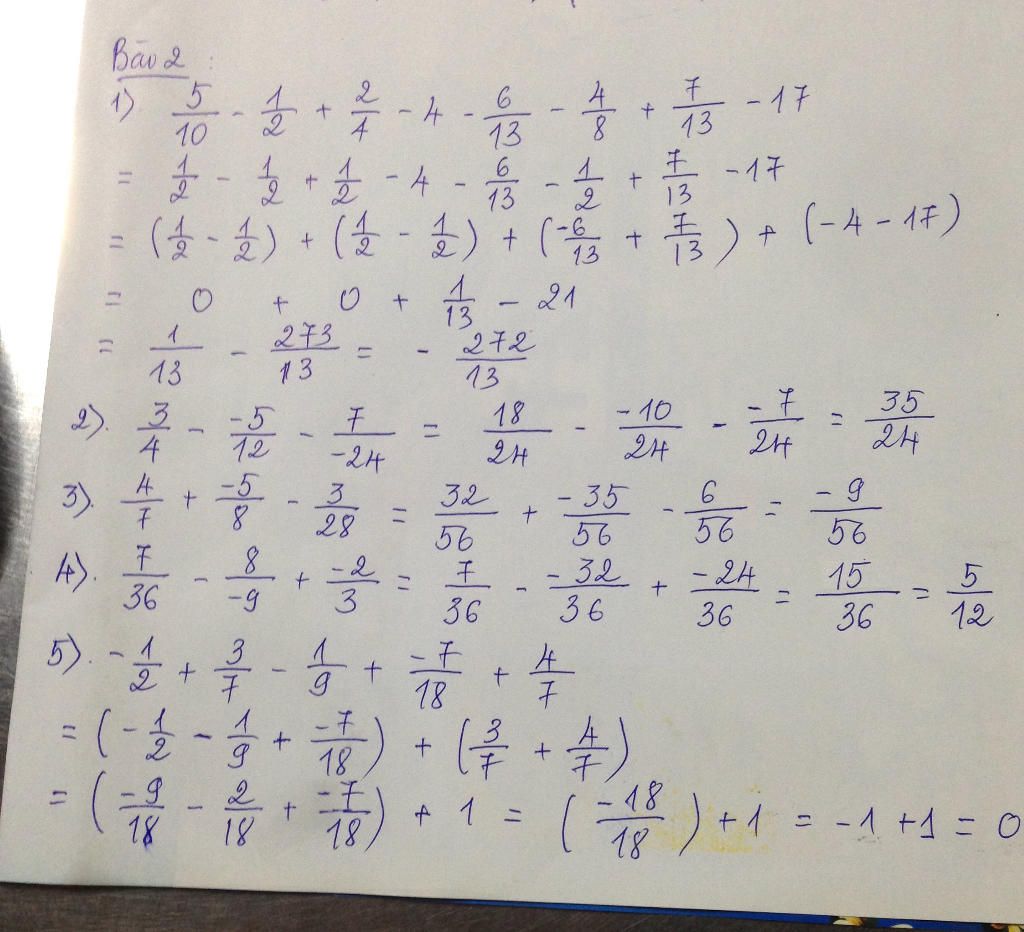 Bài 2 :
1) 5/10 - 1/2 + 2/4 - 4 - 6/13 - 4/8 + 7/13 - 17
= 1/2 - 1/2 + 1/2 - 4 - 6/13 - 1/2 + 7/13 - 17
= (1/2 - 1/2) + (1/2 - 1/2) + (-6/13 + 7/13) + (-4 - 17)
= 0 + 0 + 1/13 - 21
= 1/13 - 273/13 = - 272/13
2). 3/4 - -5/12 - 7/-24 = 18/24 - -10/24 - -7/24 = 35/24
3). 4/7 + -5/8 - 3/28 = 32/56 + -35/56 - 6/56 = -9/56
4). 7/36 - 8/-9 + -2/3 = 7/36 - -32/36 + -24/36 = 15/36 = 5/12
5). -1/2 + 3/7 - 1/9 + -7/18 + 4/7
= (-1/2 - 1/9 + -7/18) + (3/7 + 4/7)
= (-9/18 - 2/18 + -7/18) + 1 = (-18/18) + 1 = -1 + 1 = 0